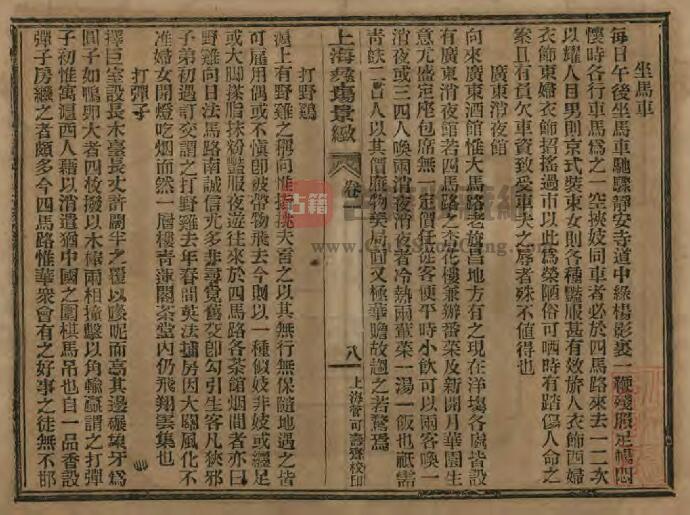 坐馬車
每日午後坐馬車馳驟靜安寺道中綠楊影裏一種殘照足暢悶
懷時各行車馬為之一空挾妓同車者必於四馬路來去一二次
以耀人目男則京式裝束女則各種艷服甚有效旂人衣飾西婦
衣飾東婦衣飾招搖過市以此為榮陋俗可哂時有踏傷人命之
案且有負欠車資致受車夫之辱者殊不值得也
廣東消夜館
向來廣東酒館惟大馬路老旂昌地方有之現在洋塲各處皆設
有廣東消夜館若四馬路之杏花樓兼辦番菜及新開月華園生
意尤盛定座包席無一定價任從客便平時小飲可以兩客喚一
消夜或三四人喚兩消夜消夜者冷熱兩葷菜一湯一飯也祇需
青蚨二百人以其價廉物美局面又極華瞻故趨之若鶩焉
上海 塲景緻 卷一 八 上海管可壽齋校印
打野鷄
滬上有野雞之稱向惟 挑夫畜之以其無行無保隨地遇之皆
可雇用偶或不愼卽被帶物飛去今則以一種似妓非妓或纏足
或大脚搽脂抹粉豔服夜遊往來於四馬路各茶館烟間者亦曰
野雞向日法馬路南誠信尤多非尋覓舊交卽勾引生客凡狹邪
子弟初遇訂交謂之打野雞去年春間英法捕房因大關風化不
准婦女開燈吃烟而然一層樓靑蓮閣茶堂內仍飛翔雲集也
打彈子
擇巨室設長木臺長丈許闊半之覆以 呢而高其邊碾象牙爲
圓子如鴨卵大者四枚撥以木棒兩相撞擊以角輸贏謂之打彈
子初惟寓滬西人藉以消遣猶中國之圍棋馬吊也自一品香設
彈子房繼之者頗多今四馬路惟華衆會有之好事之徒無不邯